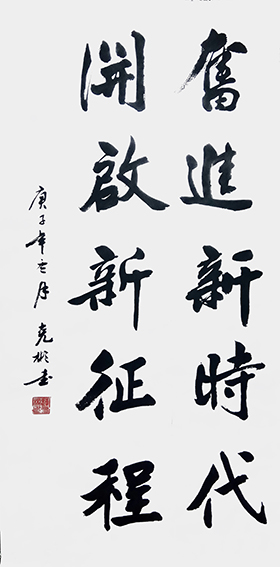 奮進新時代
開啟新征程
庚子年七月 堯彬書